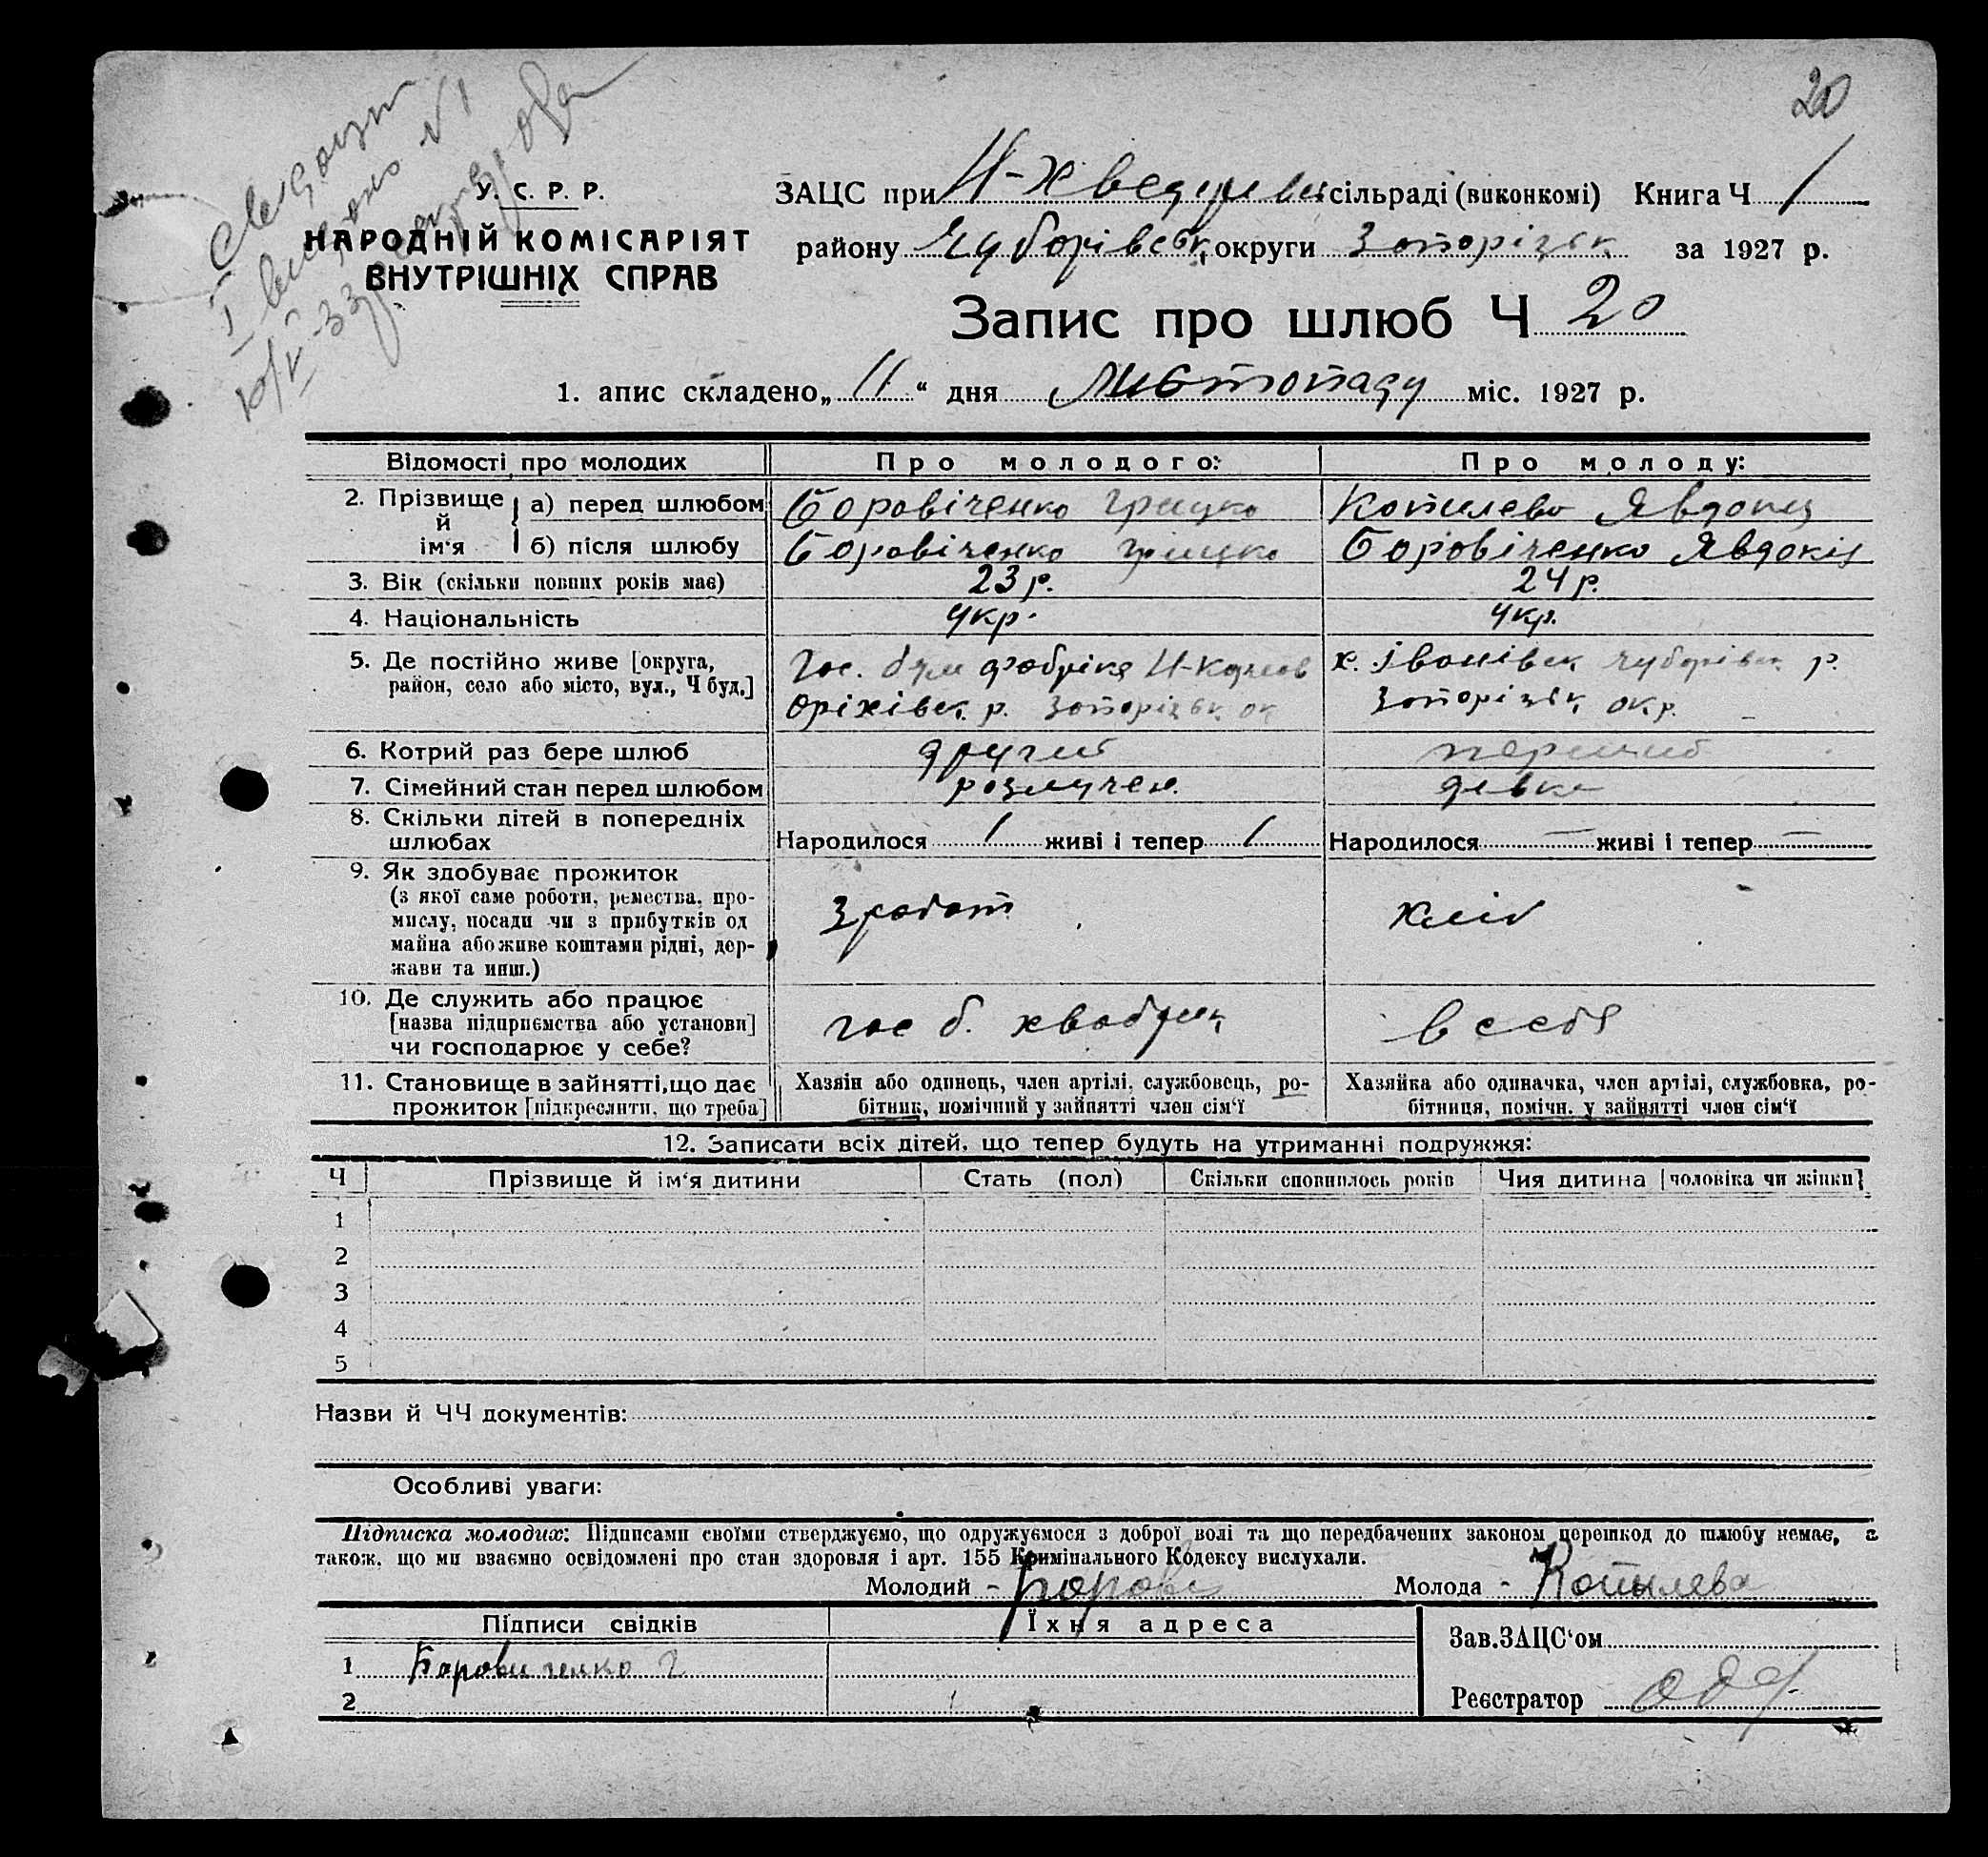 20
У. С. Р. Р.
НАРОДНІЙ КОМІСАРІЯТ
ВНУТРІШНІХ СПРАВ
ЗАЦС при сільраді (виконкомі) Книга Ч 1
району округи Запорізьк за 1927 р.
Запис про шлюб Ч 20
1. апис складено „ 11 “ дня листопаду міс. 1927 р.
Відомості про молодих Про молодого: Про молоду:
2. Прізвище й ім‘я а) перед шлюбом Боровіченко Грицко Копилева Явдокія
б) після шлюбу Боровіченко Грицко Боровіченко Явдокія
3. Вік (скільки повних років має) 23 р. 24 р.
4. Національність укр. укр.
5. Де постійно живе [округа, район, село або місто, вул., Ч буд.] Гос. фабріка Оріхівск. р. Запорізьк ок х. Іванівск р. Запорізьк окр.
6. Котрий раз бере шлюб другий перший
7. Сімейний стан перед шлюбом розлучен. девка
8. Скільки дітей в попередніх шлюбах Народилося 1 живі і тепер 1 Народилося — живі і тепер —
9. Як здобуває прожиток
(з якої саме роботи, ремества, про-
мислу, посади чи з прибутків од
майна або живе коштами рідні, дер-
жави та инш.) З работ хліб
10. Де служить або працює
[назва підприємства або установи]
чи господарює у себе? гос б. в себя
11. Становище в зайнятті, що дає
прожиток [підкреслити, що треба] Хазяїн або одинець, член артілі, службовець, ро-
бітник, помічний у зайнятті член сім‘ї Хазяйка або одиначка, член артілі, службовка, ро-
бітниця, помічн. у зайнятті член сім‘ї
12. Записати всіх дітей, що тепер будуть на утриманні подружжя:
Ч Прізвище й ім‘я дитини Стать (пол) Скільки сповнилось років Чия дитина [чоловіка чи жінки]
1
2
3
4
5
Назви й ЧЧ документів:
Особливі уваги:
Підписка молодих: Підписами своїми стверджуємо, що одружуємося з доброї волі та що передбачених законом перешкод до шлюбу немає, а
також, що ми взаємно освідомлені про стан здоровля і арт. 155 Кримінального Кодексу вислухали.
Молодий - Молода - Копылева
Підписи свідків Їхня адреса
Зав. ЗАЦС‘ом
1 Боровиченко Г
2
Реєстратор